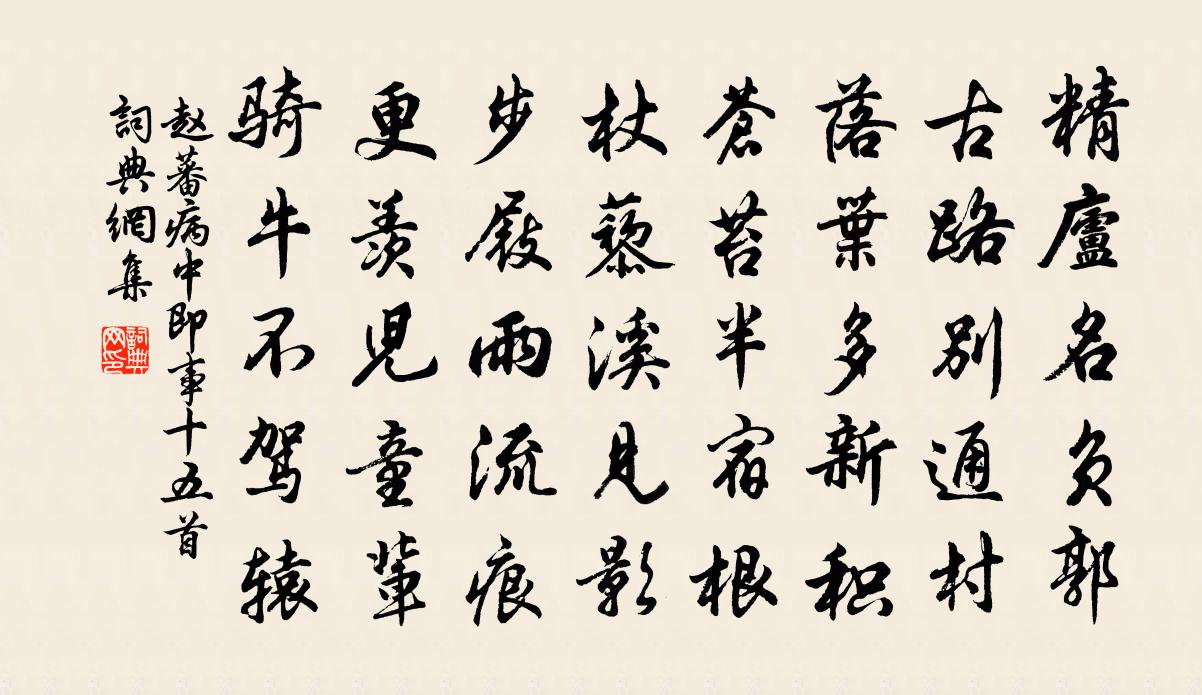 精廬名负郭
古路別通村
落葉多新积
蒼苔半宿根
杖藜溪見影
步屐雨流痕
更羨児童輩
骑牛不驾辕
赵蕃病中即事十五首
詞典網集
詞典网印